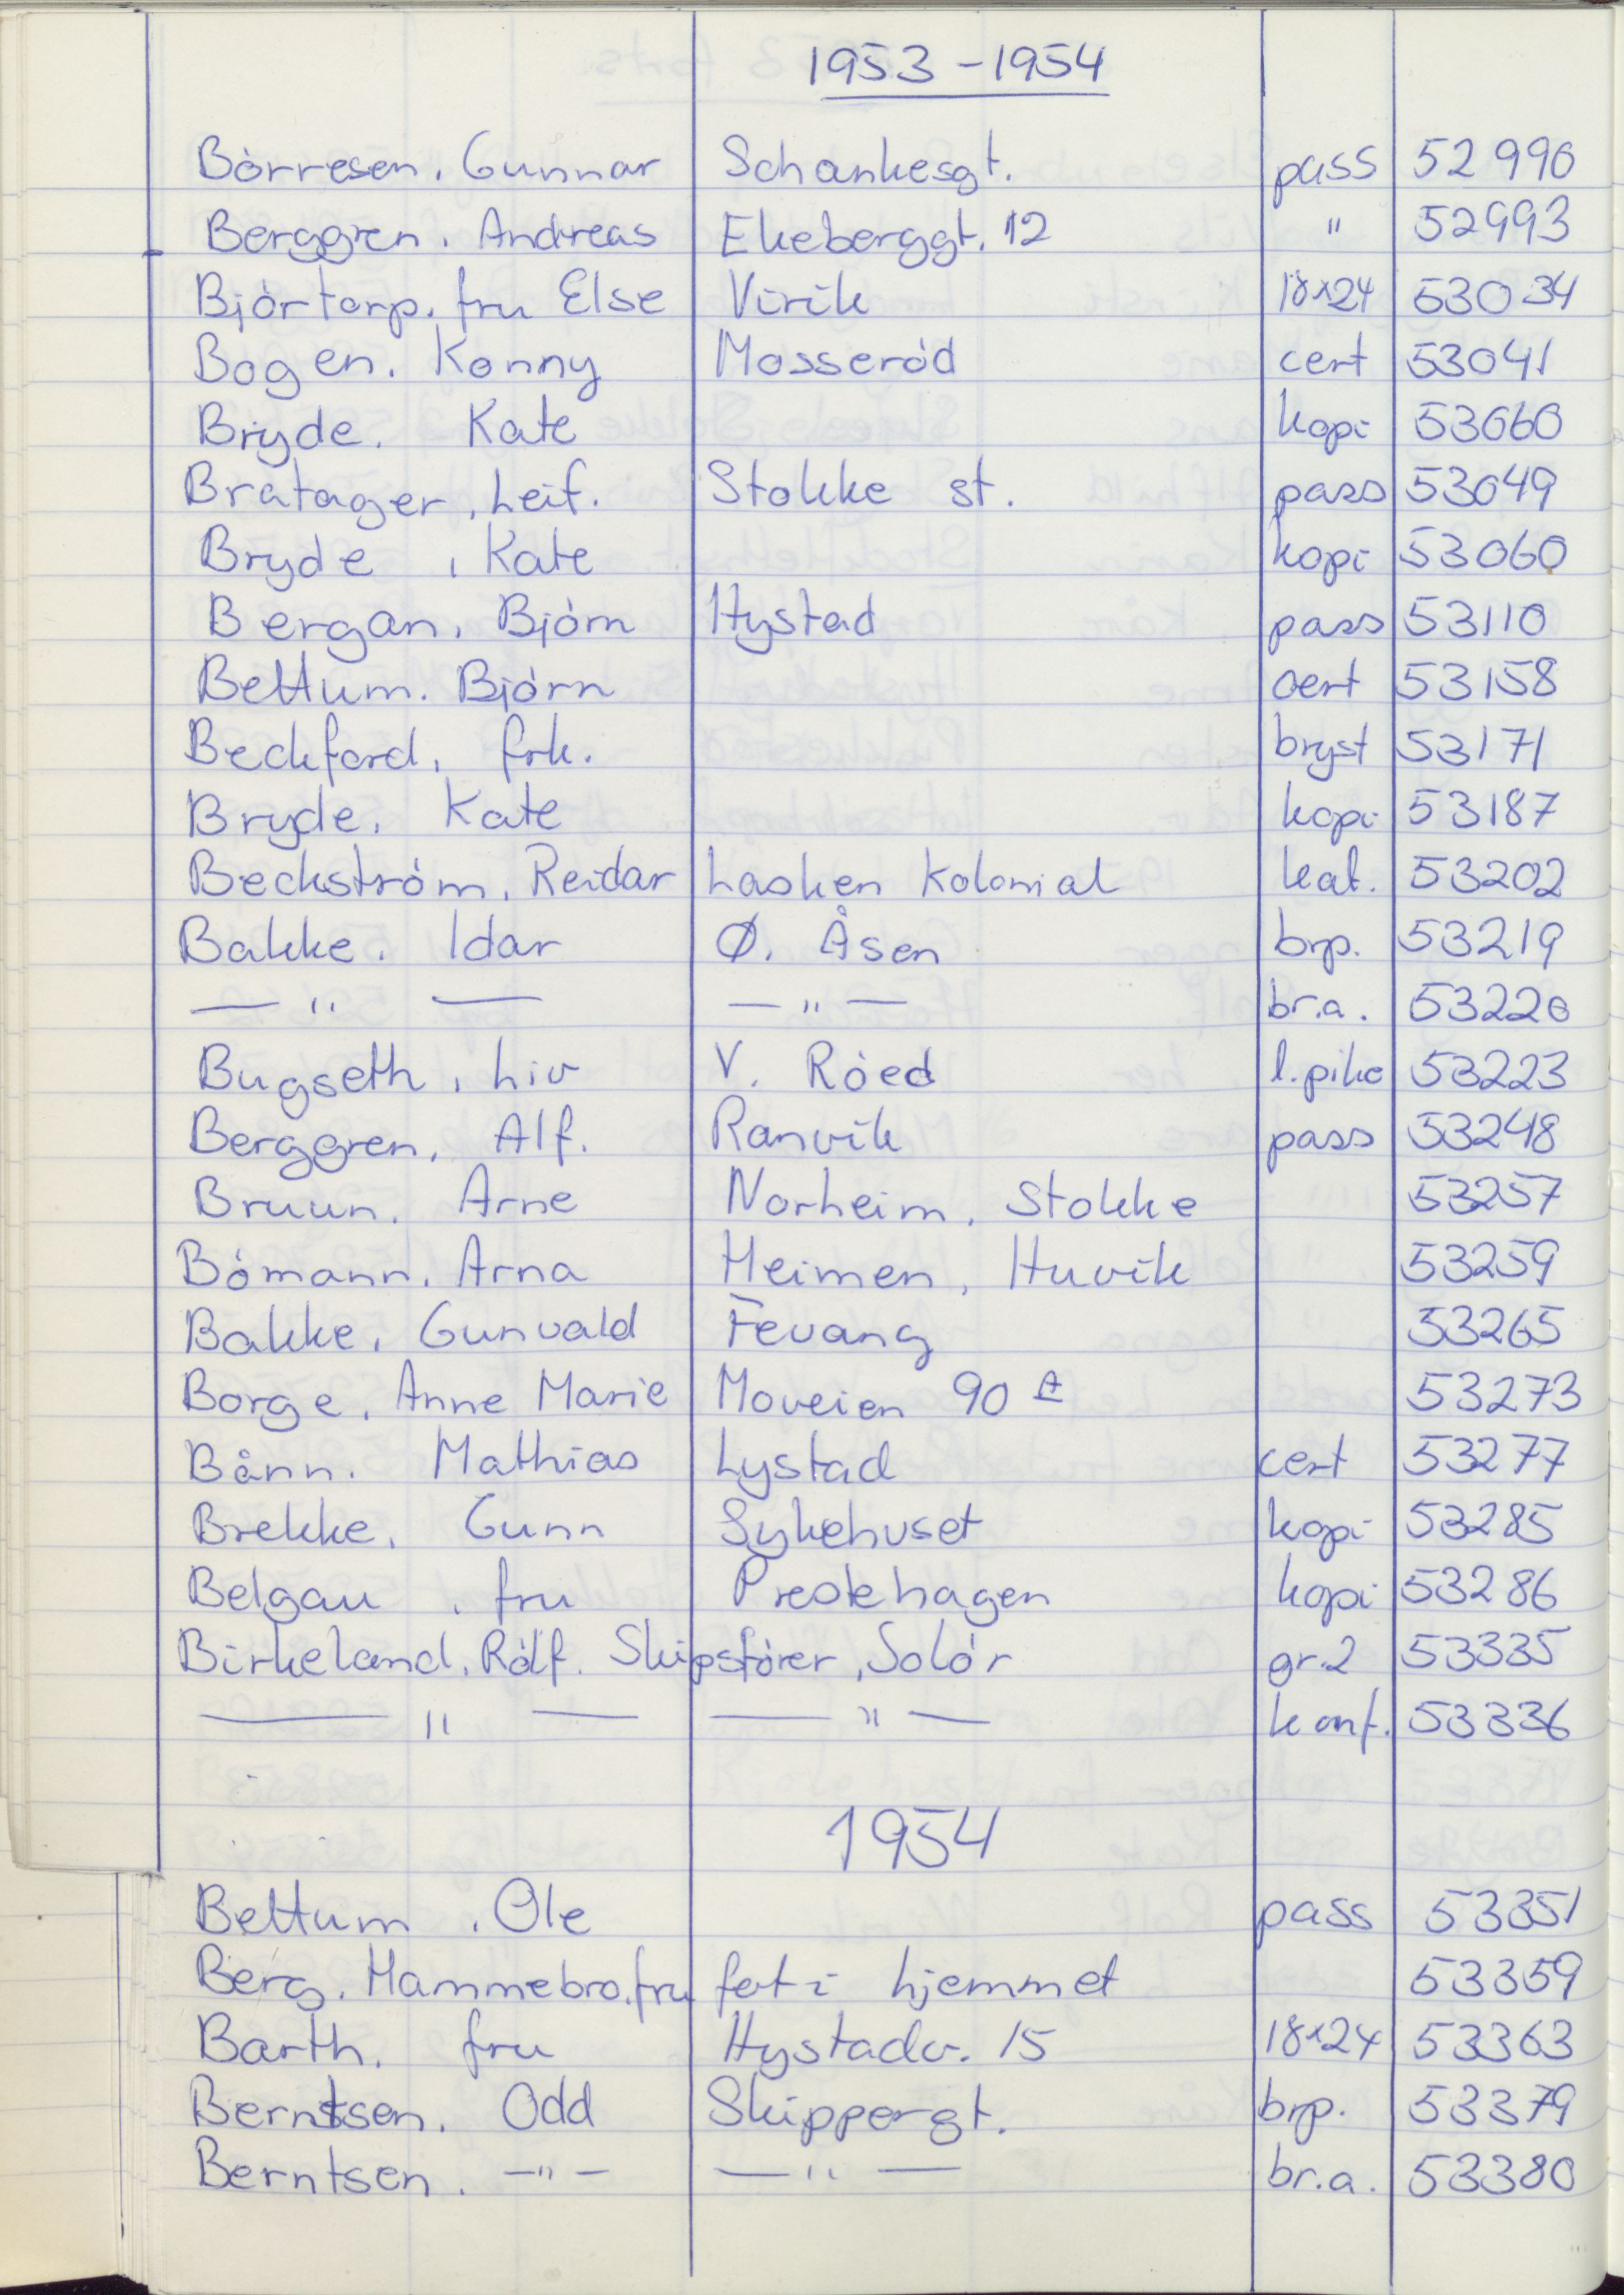 1953 - 1954
Börresen, Gunnar Schankesgt. pass 52990
Berggren, Andreas Ekeberggt. 12 " 52993
Bjórtorp, fru Else Virik 18x24 53034
Bogen. Konny Mosseród cert 53041
Bryde. Kate kopi 53060
Bratager, Leif. Stokke st. pass 53049
Bryde, Kate kopi 53060
Bergan, Bjórn Hystad pass 53110
Bettum. Bjórn cert 53158
Beckford, frk. bryst 53171
Bryde, Kate kopi 53187
Beckström, Reidar Lasken Kolonial kat. 53202
Bakke. Idar Ø. Åsen brp. 53219
— " — — " — br.a. 53220
Bugseth, Liv V. Róed l.pike 53223
Berggren, Alf. Ranvik pass 53248
Bruun. Arne Norheim, Stokke 53257
Bómann. Arna Heimen, Huvik 53259
Bakke, Gunvald Fevang 53265
Borge, Anne Marie Moveien 90 A 53273
Bånn. Mathias Lystad cert 53277
Brekke, Gunn Sykehuset kopi 53285
Belgau, fru Prestehagen kopi 53286
Birkeland, Rolf. Skipsfórer, Solór gr.2 53335
— " — — " — konf. 53336
1954
Bettum, Ole pass 53351
Berg. Hammebro, fru fot i hjemmet 53359
Barth. fru Hystadv. 15 18x24 53363
Berntsen. Odd Skippergt. brp. 53379
Berntsen. — " — — " — br.a. 53380